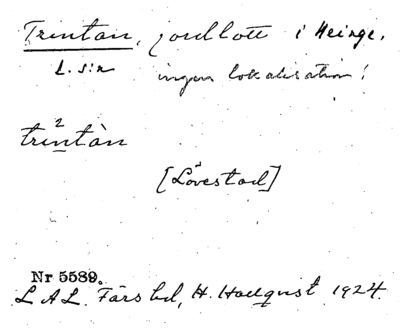 Trintan, jordlott i Heinge.
L. s:n ingen lokalisation!
2
trintàn
[Lövestad]
Nr 5589.
L A L. Färs hd, H. Hallquist 1924.